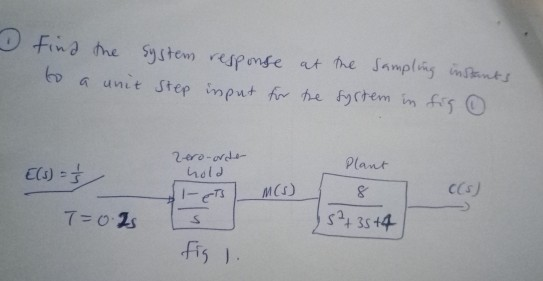 ① Find the system response at the sampling instants
to a unit step input for the system in fig ①
Zero-order
hold
Plant
E(s) = 1/s
1-e^-Ts
s
M(s)
8
s²+3s+4
C(s)
T=0.2s
fig 1.